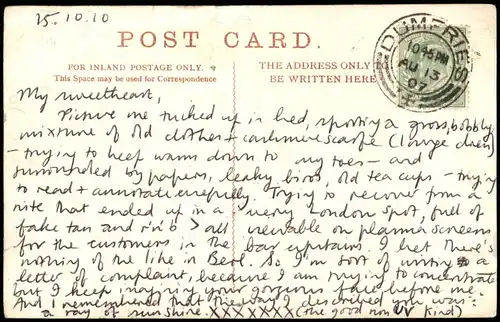 15.10.10
POST CARD.
FOR INLAND POSTAGE ONLY.
This Space may be used for Correspondence
THE ADDRESS ONLY TO
BE WRITTEN HERE
DUMFRIES
10 45 PM
AU 13
07
My sweetheart,
Picture me tucked up in bed, sporting a gross, bobbly
mixture of old clothes + cashmere scarfe (lounge diem)
– trying to keep warm down to my toes – and
surrounded by papers, leaky biros, old tea cups – trying
to read + annotate carefully. Trying to recover from a
nite that ended up in a very London spot, full of
fake tan and r'n'b > all viewable on plasma screens
for the customers in the bar upstairs. I bet there's
nothing of the like in Berl. So I'm sort of writing a
letter of complaint, because I am trying to concentrate
but I keep inagying your gorgeous face before me.
And I remembered that the way I described you was:
a ray of sunshine. XXXXXXX (the good non UV kind)